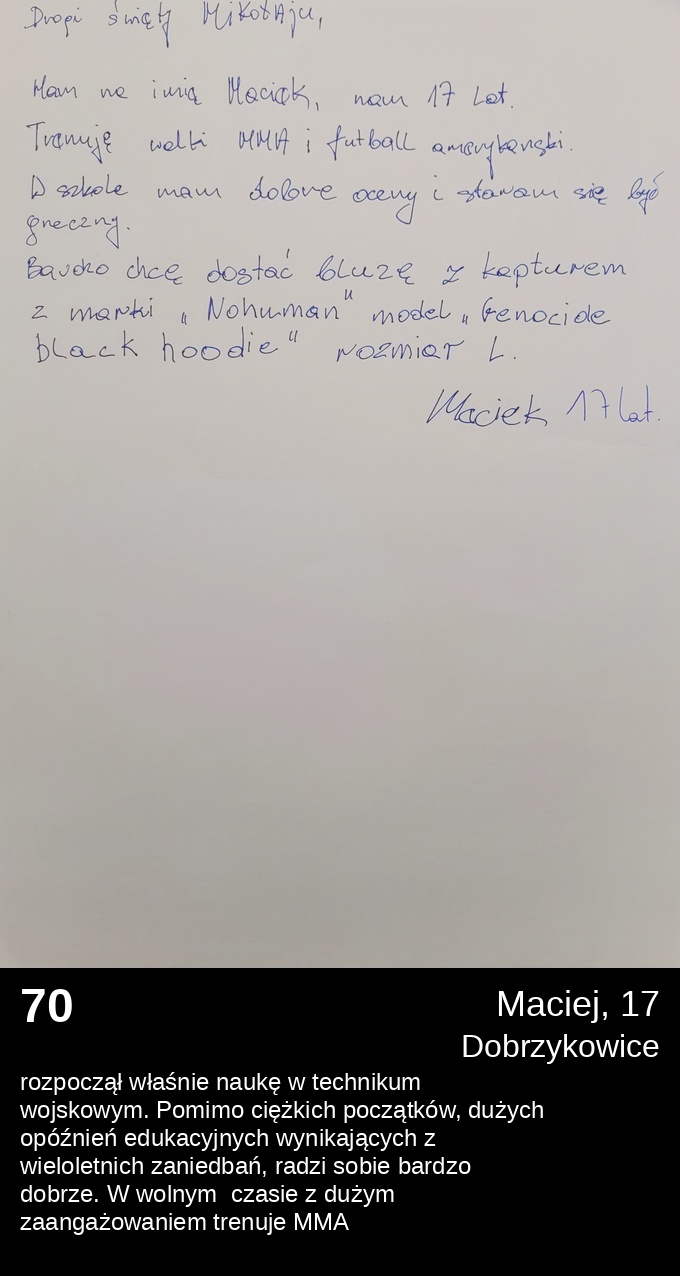 Drogi święty Mikołaju,
Mam na imię Maciek, mam 17 lat.
Trenuję walki MMA i futball amerykański.
W szkole mam dobre oceny i staram się być
grzeczny.
Bardzo chcę dostać bluzę z kapturem
z marki „Nohuman" model „Genocide
black hoodie" rozmiar L.
Maciek 17 lat.
70
Maciej, 17
Dobrzykowice
rozpoczął właśnie naukę w technikum
wojskowym. Pomimo ciężkich początków, dużych
opóźnień edukacyjnych wynikających z
wieloletnich zaniedbań, radzi sobie bardzo
dobrze. W wolnym  czasie z dużym
zaangażowaniem trenuje MMA